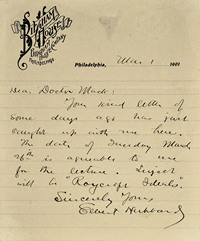 Philadelphia, Mar. 1 1901
Dear Doctor Mack:
Your kind letter of
some days ago has just
caught up with me here.
The date of Tuesday March
26th is agreeable to me
for the lecture. Subject
will be "Roycroft Ideals".
Sincerely Yours
Elbert Hubbard